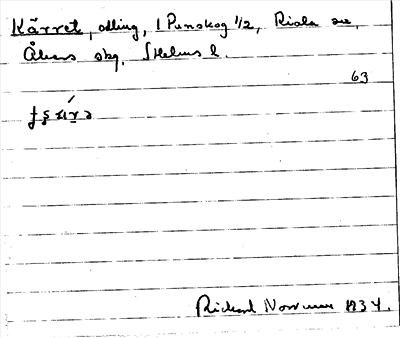 Kärret, odling, 1 Punskog 1/2, Riala sn,
Åkers skg, Sthlms l.
63
Rickard Norrman 1934.